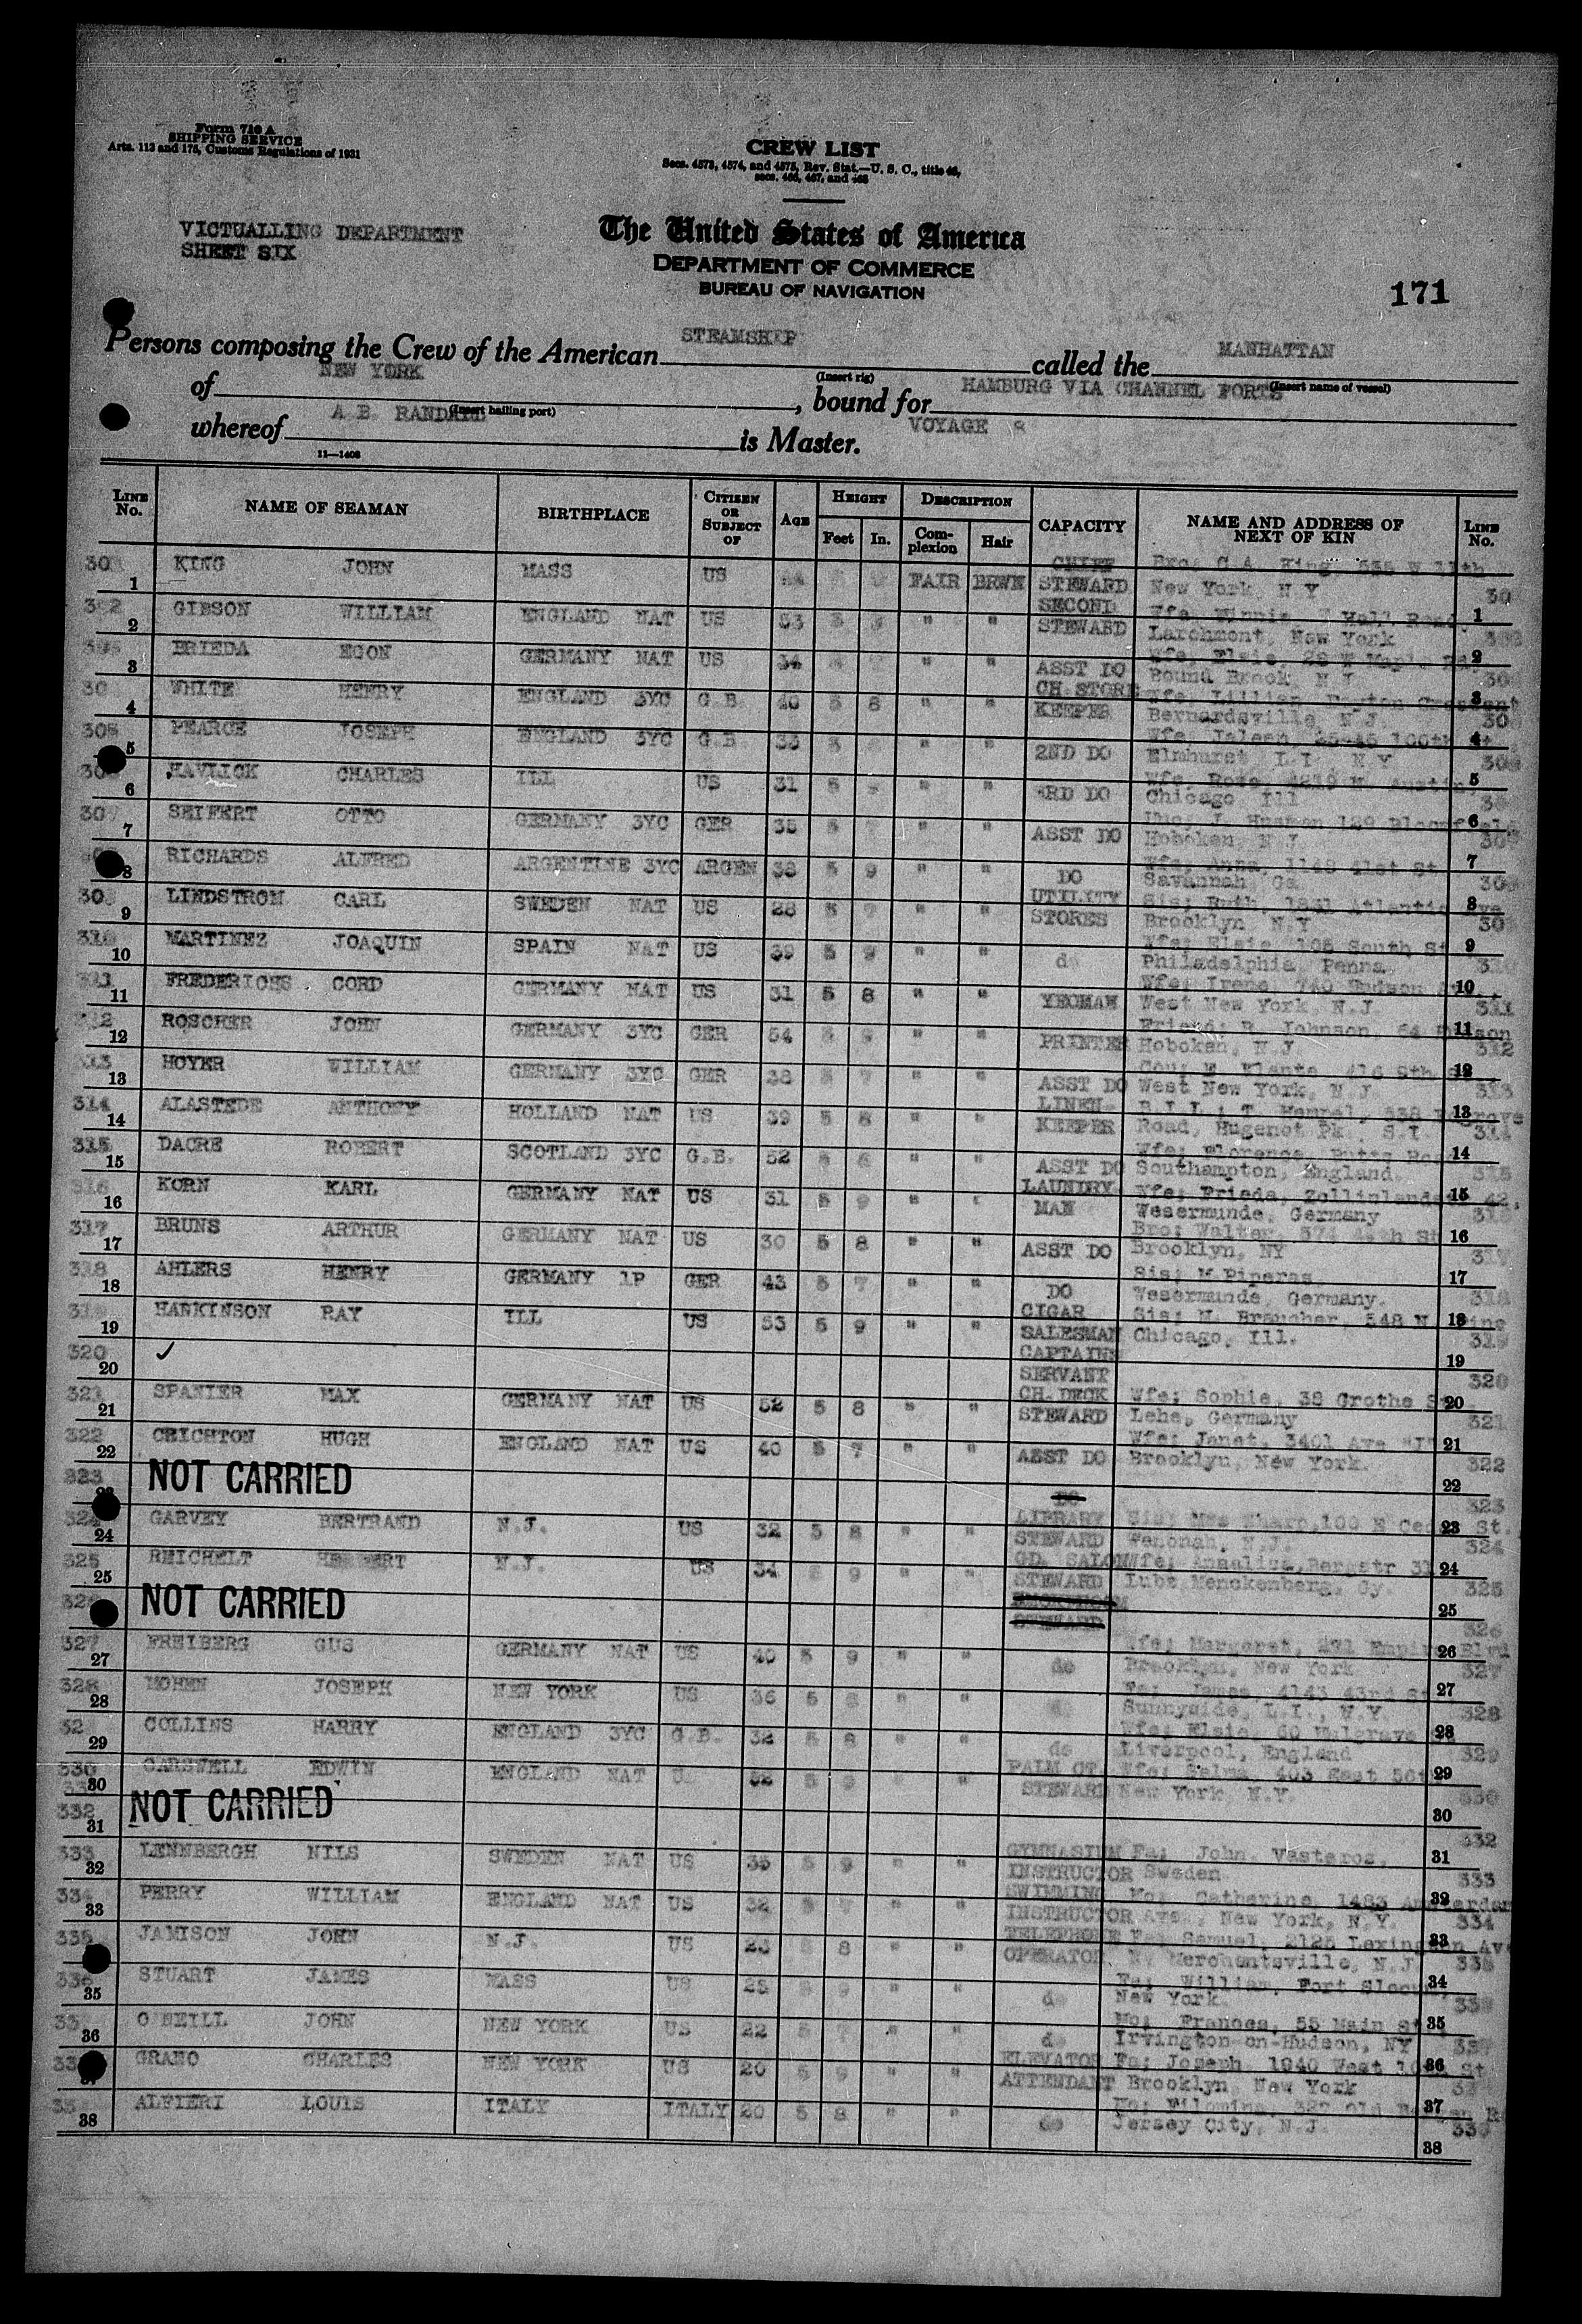 Form 710 A
SHIPPING SERVICE
Arts. 113 and 175, Customs Regulations of 1931
CREW LIST
Secs. 4573, 4574, and 4575, Rev. Stat.—U. S. C., title 46,
secs. 466, 467, and 468
VICTUALLING DEPARTMENT
SHEET SIX
The United States of America
DEPARTMENT OF COMMERCE
BUREAU OF NAVIGATION
171
Persons composing the Crew of the American STEAMSHIP called the MANHATTAN
(Insert rig) (Insert name of vessel)
of NEW YORK, bound for HAMBURG VIA CHANNEL PORTS
(Insert hailing port)
whereof A.B. RANDALL is Master. VOYAGE 8
11—1408
LINE No. NAME OF SEAMAN BIRTHPLACE CITIZEN OR SUBJECT OF AGE HEIGHT Feet In. DESCRIPTION Complexion Hair CAPACITY NAME AND ADDRESS OF NEXT OF KIN LINE No.
1 KING JOHN MASS US FAIR BRWN CHIEF STEWARD Bro. C.A. King, 535 W 11th New York, N Y 1
2 GIBSON WILLIAM ENGLAND NAT US 53 5 " " SECOND STEWARD Wfe, Minnie, Hall Road, Larchmont, New York 2
3 BRIEDA EGON GERMANY NAT US 34 " " ASST DO Wfe, Elsie, 28 W Maple Bound Brook, N J 3
4 WHITE HENRY ENGLAND 3YC G.B. 40 5 8 " " CH. STORE KEEPER Wfe, Lillian, Crescent Bernardsville, N.J. 4
5 PEARCE JOSEPH ENGLAND 3YC G.B. 33 5 " " 2ND DO Wfe, 100th Elmhurst L I N Y 5
6 HAVLICK CHARLES ILL US 31 5 " " 3RD DO Wfe, Rose, 4219 N. Austin, Chicago Ill 6
7 SEIFERT OTTO GERMANY 3YC GER 35 5 " " ASST DO 129 Bloomfield Hoboken, N.J. 7
8 RICHARDS ALFRED ARGENTINE 3YC ARGEN 38 5 9 " " DO Wfe, Anna, 1148 41st St Savannah Ga 8
9 LINDSTROM CARL SWEDEN NAT US 28 5 7 " " UTILITY STORES Sis; Ruth, 1831 Atlantic Ave Brooklyn N.Y 9
310 10 MARTINEZ JOAQUIN SPAIN NAT US 39 5 9 " " do Wfe; Elsie, 105 South St Philadelphia Penna 10
311 11 FREDERICHS CORD GERMANY NAT US 31 5 8 " " YEOMAN Wfe; Irene, Hudson Av West New York, N.J. 11 311
312 12 ROSCHER JOHN GERMANY 3YC GER 54 5 " " PRINTER Friend; R. Johnson, 64 Hudson Hoboken, N.J. 312
313 13 HOYER WILLIAM GERMANY 3YC GER 38 5 7 " " ASST DO Cou; E. Plante 416 9th St West New York, N.J. 12 313
314 14 ALASTEDE ANTHONY HOLLAND NAT US 39 5 8 " " LINEN KEEPER B.I.L.; T. Hempel, 538 Road, Hugenot Pk. S.I. 13 314
315 15 DACRE ROBERT SCOTLAND 3YC G.B. 52 5 " " ASST DO Wfe; Florence, Butts Road Southampton, England 14 315
316 16 KORN KARL GERMANY NAT US 31 5 9 " " LAUNDRY MAN Wfe; Frieda, 42, Wesermunde, Germany 15
317 17 BRUNS ARTHUR GERMANY NAT US 30 5 8 " " ASST DO Bro; Walter, St Brooklyn, NY 16 317
318 18 AHLERS HENRY GERMANY 1P GER 43 5 7 " " DO Sis; M Piperas Wesermunde, Germany. 17 318
319 19 HARKINSON RAY ILL US 53 5 9 " " CIGAR SALESMAN Sis; M. Braucher, 348 N. Chicago, Ill. 18 319
320 20 ✓ CAPTAINS SERVANT 19 320
321 21 SPANIER MAX GERMANY NAT US 52 5 8 " " CH. DECK STEWARD Wfe; Sophie, 38 Grothe St. Lehe, Germany 20 321
322 22 CRICHTON HUGH ENGLAND NAT US 40 5 7 " " ASST DO Wfe; Janet, 3401 Ave "I" Brooklyn, New York. 21 322
323 NOT CARRIED DO 22 323
324 24 GARVEY BERTRAND N.J. US 32 5 8 " " LIBRARY STEWARD Sis; Mrs Sharp, 100 E Cedar St. Wenonah, N.J. 23 324
325 25 REICHELT HERBERT N.J. US 34 5 9 " " GD. SALON STEWARD Wfe; Annalisa, Bergstr 31 Menckenberg, Gy. 24 325
326 NOT CARRIED STEWARD 25 326
327 27 FREIBERG GUS GERMANY NAT US 40 5 9 " " do Wfe; Margaret, 421 Empire Blvd Brooklyn, New York 26 327
328 28 MOHEN JOSEPH NEW YORK US 36 5 8 " " do Fa; James, 4143 43rd St Sunnyside, L.I., N.Y. 27 328
29 COLLINS HARRY ENGLAND 3YC G.B. 32 5 8 " " do Wfe; Elsie, 60 Mulgrave Liverpool, England 28 329
330 30 CARSWELL EDWIN ENGLAND NAT US 5 " PALM CT. STEWARD Wfe; Selma, 403 East 56th New York, N.Y. 29 330
332 31 NOT CARRIED 30 332
333 32 LENNBERGH NILS SWEDEN NAT US 35 5 9 " " GYMNASIUM INSTRUCTOR Fa; John, Vasteros, Sweden 31 333
334 33 PERRY WILLIAM ENGLAND NAT US 32 5 7 " " SWIMMING INSTRUCTOR Mo; Catharine, 1483 Amsterdam Ave., New York, N.Y. 32 334
335 JAMISON JOHN N.J. US 23 8 " " TELEPHONE OPERATOR Fa; Samuel, 2125 Lexington Ave N. Merchantsville, N.J. 33 335
336 35 STUART JAMES MASS US 25 5 9 " " do Fa; William, Fort Slocum, New York 34
36 O'NEILL JOHN NEW YORK US 22 5 7 " " do Mo; Frances, 55 Main St. Irvington-on-Hudson, NY 35
GRANO CHARLES NEW YORK US 20 5 9 " " ELEVATOR ATTENDANT Fa; Joseph, 1940 West 10th St Brooklyn, New York 36
38 ALFIERI LOUIS ITALY ITALY 20 5 8 " " do Mo; Filomina, 327 Old Bergen Rd Jersey City, N.J. 37
38